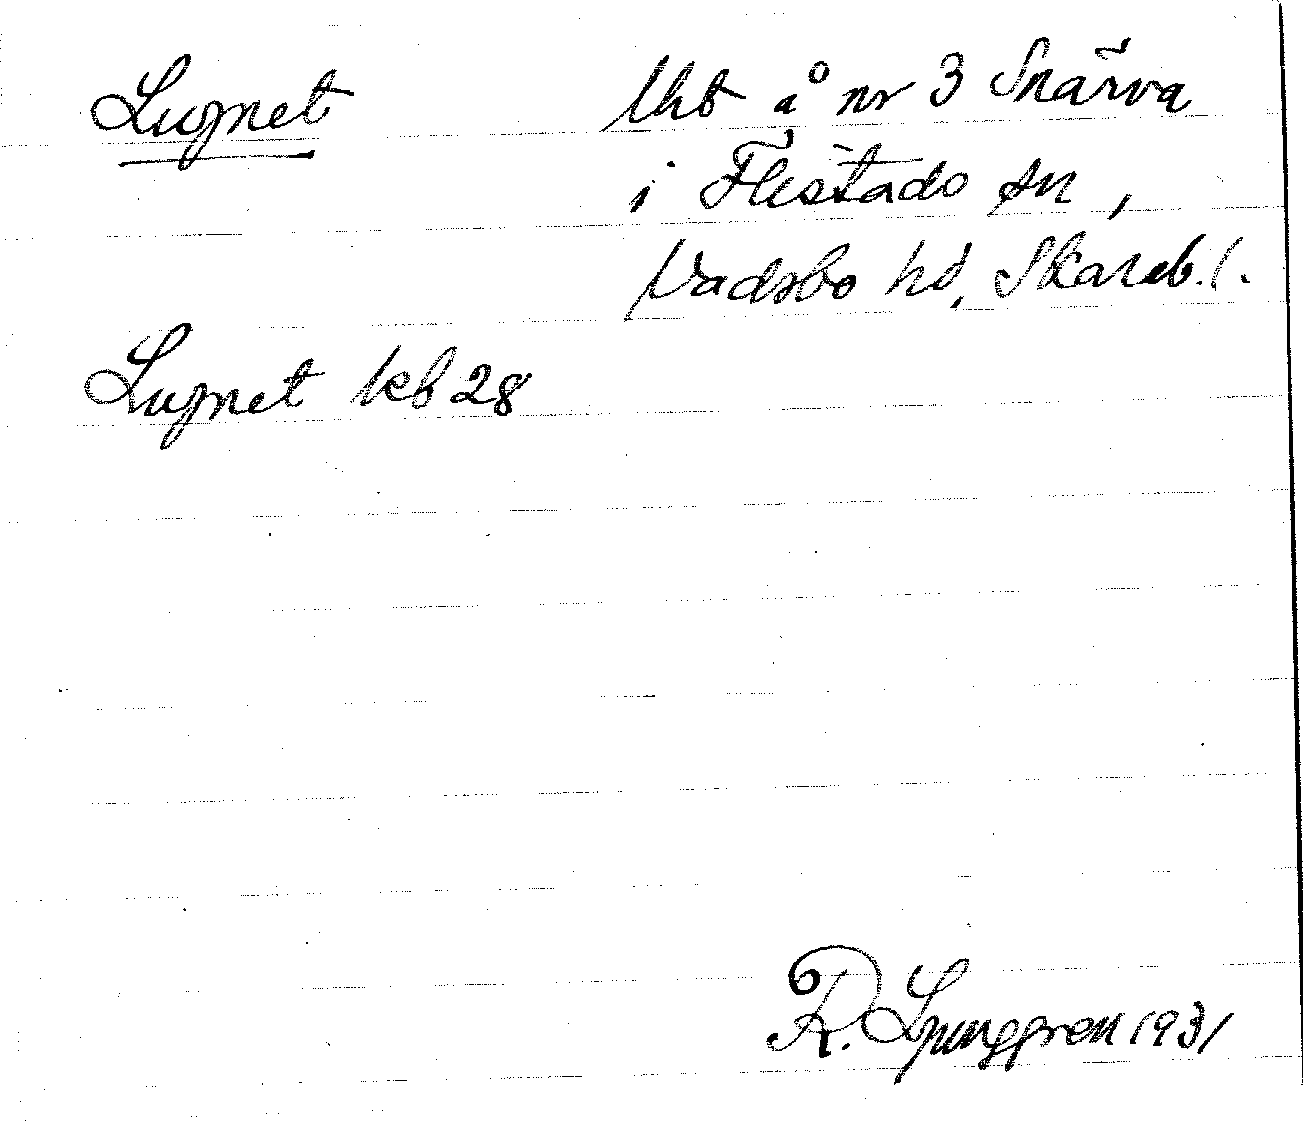 Lugnet
Uht å nr 3 Snärva
i Flistado sn,
Vadsbo hd, Skarab. l.
Lugnet kb 28
R. Ljunggren 1931